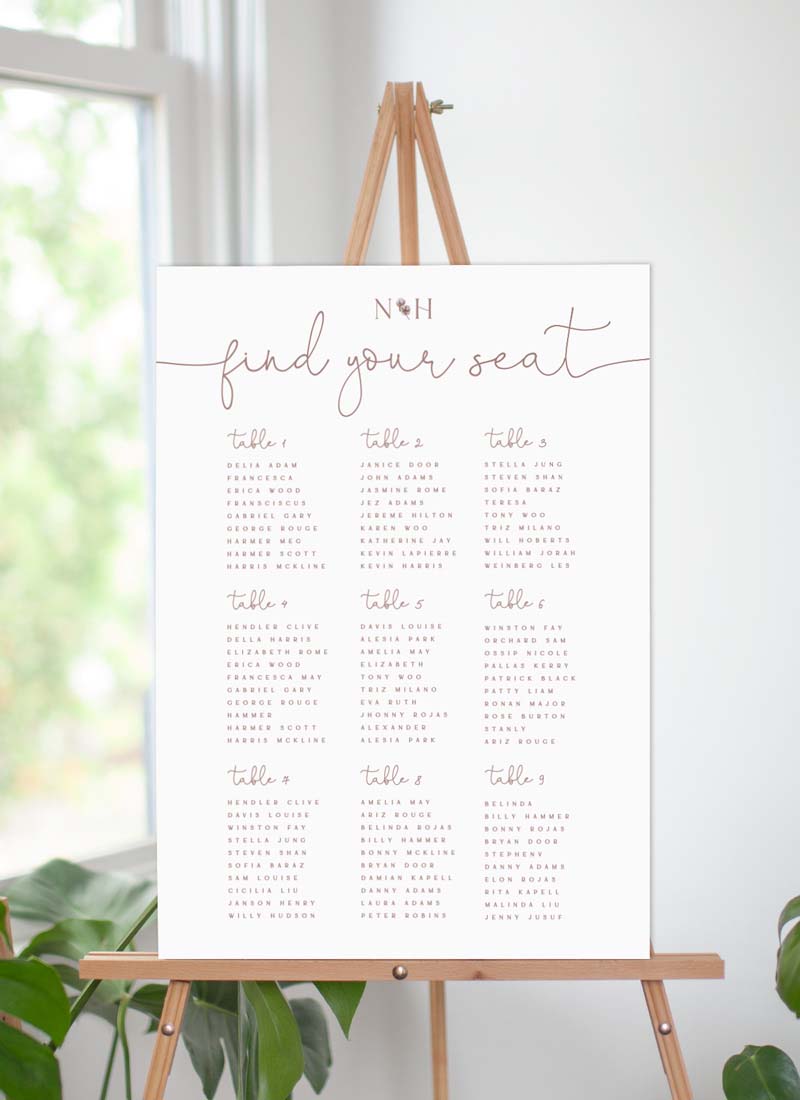 N H
find your seat
table 1
DELIA ADAM
FRANCESCA
ERICA WOOD
FRANSCISCUS
GABRIEL GARY
GEORGE ROUGE
HARMER MEG
HARMER SCOTT
HARRIS MCKLINE
table 2
JANICE DOOR
JOHN ADAMS
JASMINE ROME
JEZ ADAMS
JEREME HILTON
KAREN WOO
KATHERINE JAY
KEVIN LAPIERRE
KEVIN HARRIS
table 3
STELLA JUNG
STEVEN SHAN
SOFIA BARAZ
TERESA
TONY WOO
TRIZ MILANO
WILL HOBERTS
WILLIAM JORAH
WEINBERG LES
table 4
HENDLER CLIVE
DELLA HARRIS
ELIZABETH ROME
ERICA WOOD
FRANCESCA MAY
GABRIEL GARY
GEORGE ROUGE
HAMMER
HARMER SCOTT
HARRIS MCKLINE
table 5
DAVIS LOUISE
ALESIA PARK
AMELIA MAY
ELIZABETH
TONY WOO
TRIZ MILANO
EVA RUTH
JHONNY ROJAS
ALEXANDER
ALESIA PARK
table 6
WINSTON FAY
ORCHARD SAM
OSSIP NICOLE
PALLAS KERRY
PATRICK BLACK
PATTY LIAM
RONAN MAJOR
ROSE BURTON
STANLY
ARIZ ROUGE
table 7
HENDLER CLIVE
DAVIS LOUISE
WINSTON FAY
STELLA JUNG
STEVEN SHAN
SOFIA BARAZ
SAM LOUISE
CICILIA LIU
JANSON HENRY
WILLY HUDSON
table 8
AMELIA MAY
ARIZ ROUGE
BELINDA ROJAS
BILLY HAMMER
BONNY MCKLINE
BRYAN DOOR
DAMIAN KAPELL
DANNY ADAMS
LAURA ADAMS
PETER ROBINS
table 9
BELINDA
BILLY HAMMER
BONNY ROJAS
BRYAN DOOR
STEPHENV
DANNY ADAMS
ELON ROJAS
RITA KAPELL
MALINDA LIU
JENNY JUSUF